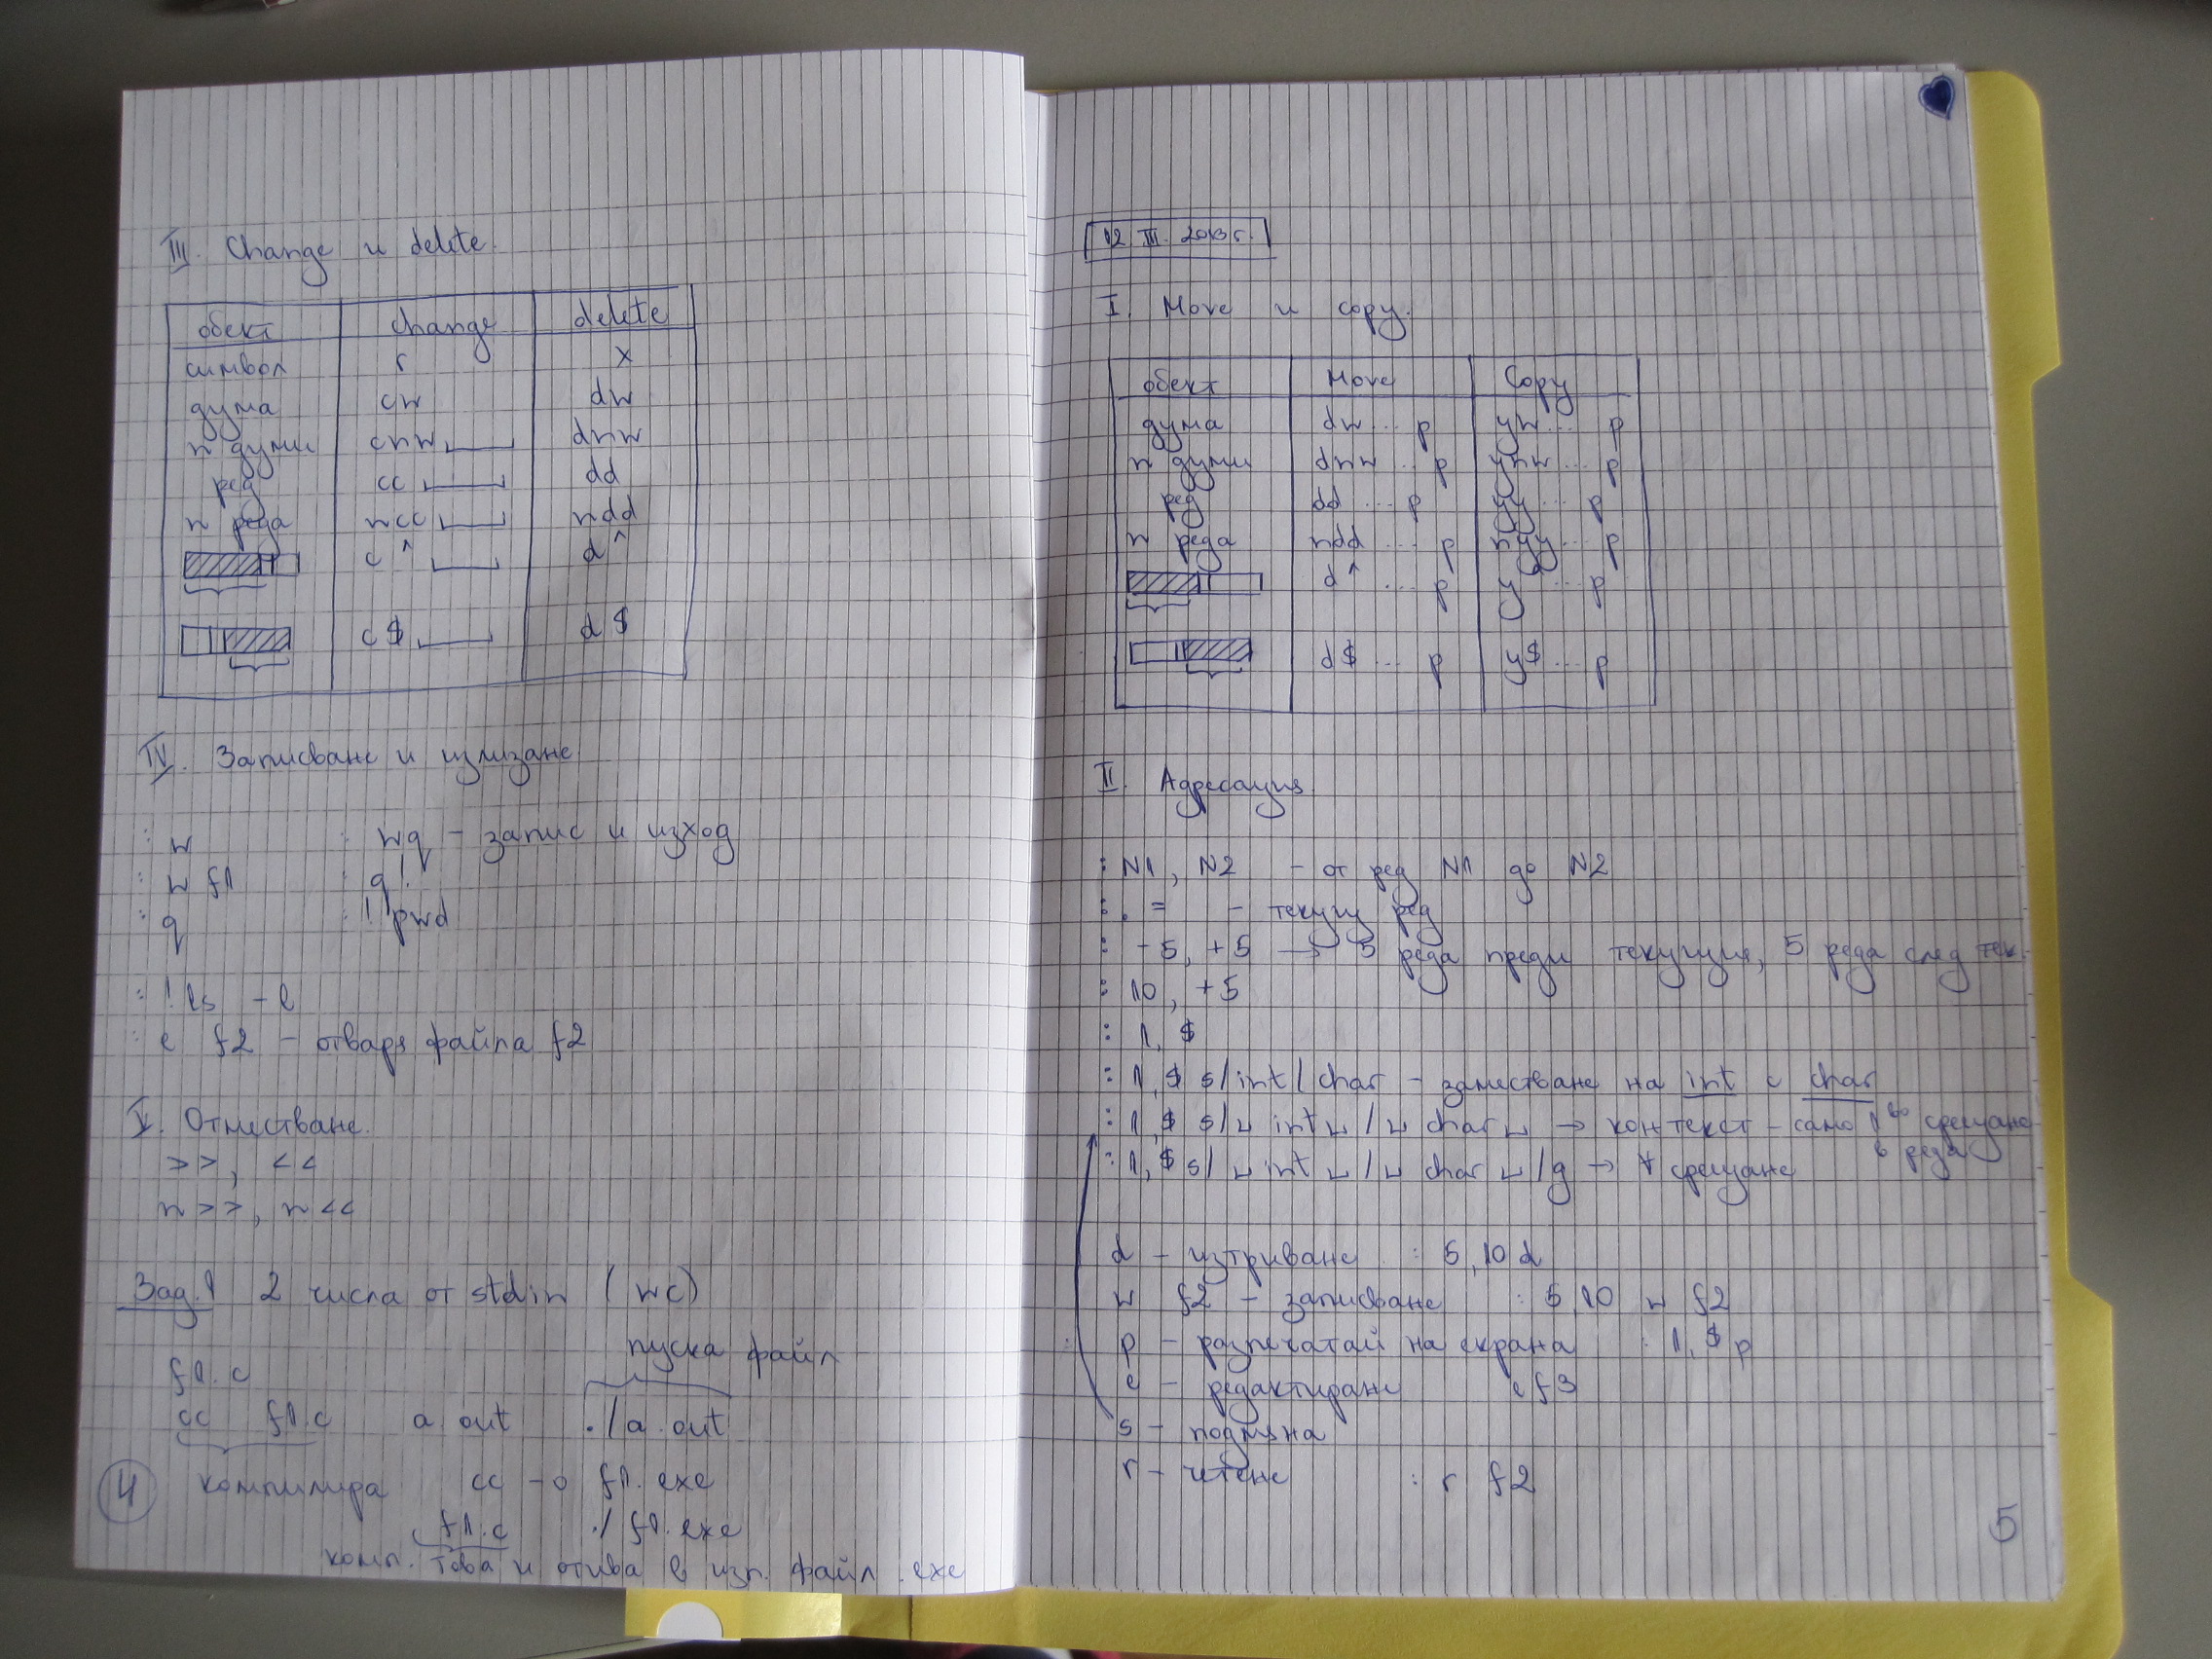 III. Change и delete.
обект change delete
символ r x
дума cw dw
n думи cnw dnw
ред cc dd
n реда ncc ndd
c^ d^
c$ d$
IV. Записване и излизане
: w : wq – запис и изход
: w f1 : q!
: q : ! pwd
: ! ls -l
: e f2 – отваря файла f2
V. Отместване.
>>, <<
n>>, n<<
Зад.1 2 числа от stdin (wc)
пуска файл
f1.c
cc f1.c a.out ./a.out
компилира cc -o f1.exe
f1.c ./f1.exe
комп. това и отива в изп. файл .exe
4
12 III. 2013г.
I. Move и copy.
обект Move Copy
дума dw ... p yw ... p
n думи dnw ... p ynw ... p
ред dd ... p yy ... p
n реда ndd ... p nyy ... p
d^ ... p y^ ... p
d$ ... p y$ ... p
II. Адресация
: N1, N2 – от ред N1 до N2
: . = – текущ ред
: -5, +5 → 5 реда преди текущия, 5 реда след тек.
: 10, +5
: 1, $
: 1, $ s/int/char – заместване на int с char
: 1, $ s/␣int␣/␣char␣ → контекст – само 1во срещане
в реда
: 1, $ s/␣int␣/␣char␣/g → ∀ срещане
d – изтриване : 5,10 d
w f2 – записване : 5,10 w f2
p – разпечатай на екрана : 1,$ p
e – редактиране e f3
s – подмяна
r – четене : r f2
5